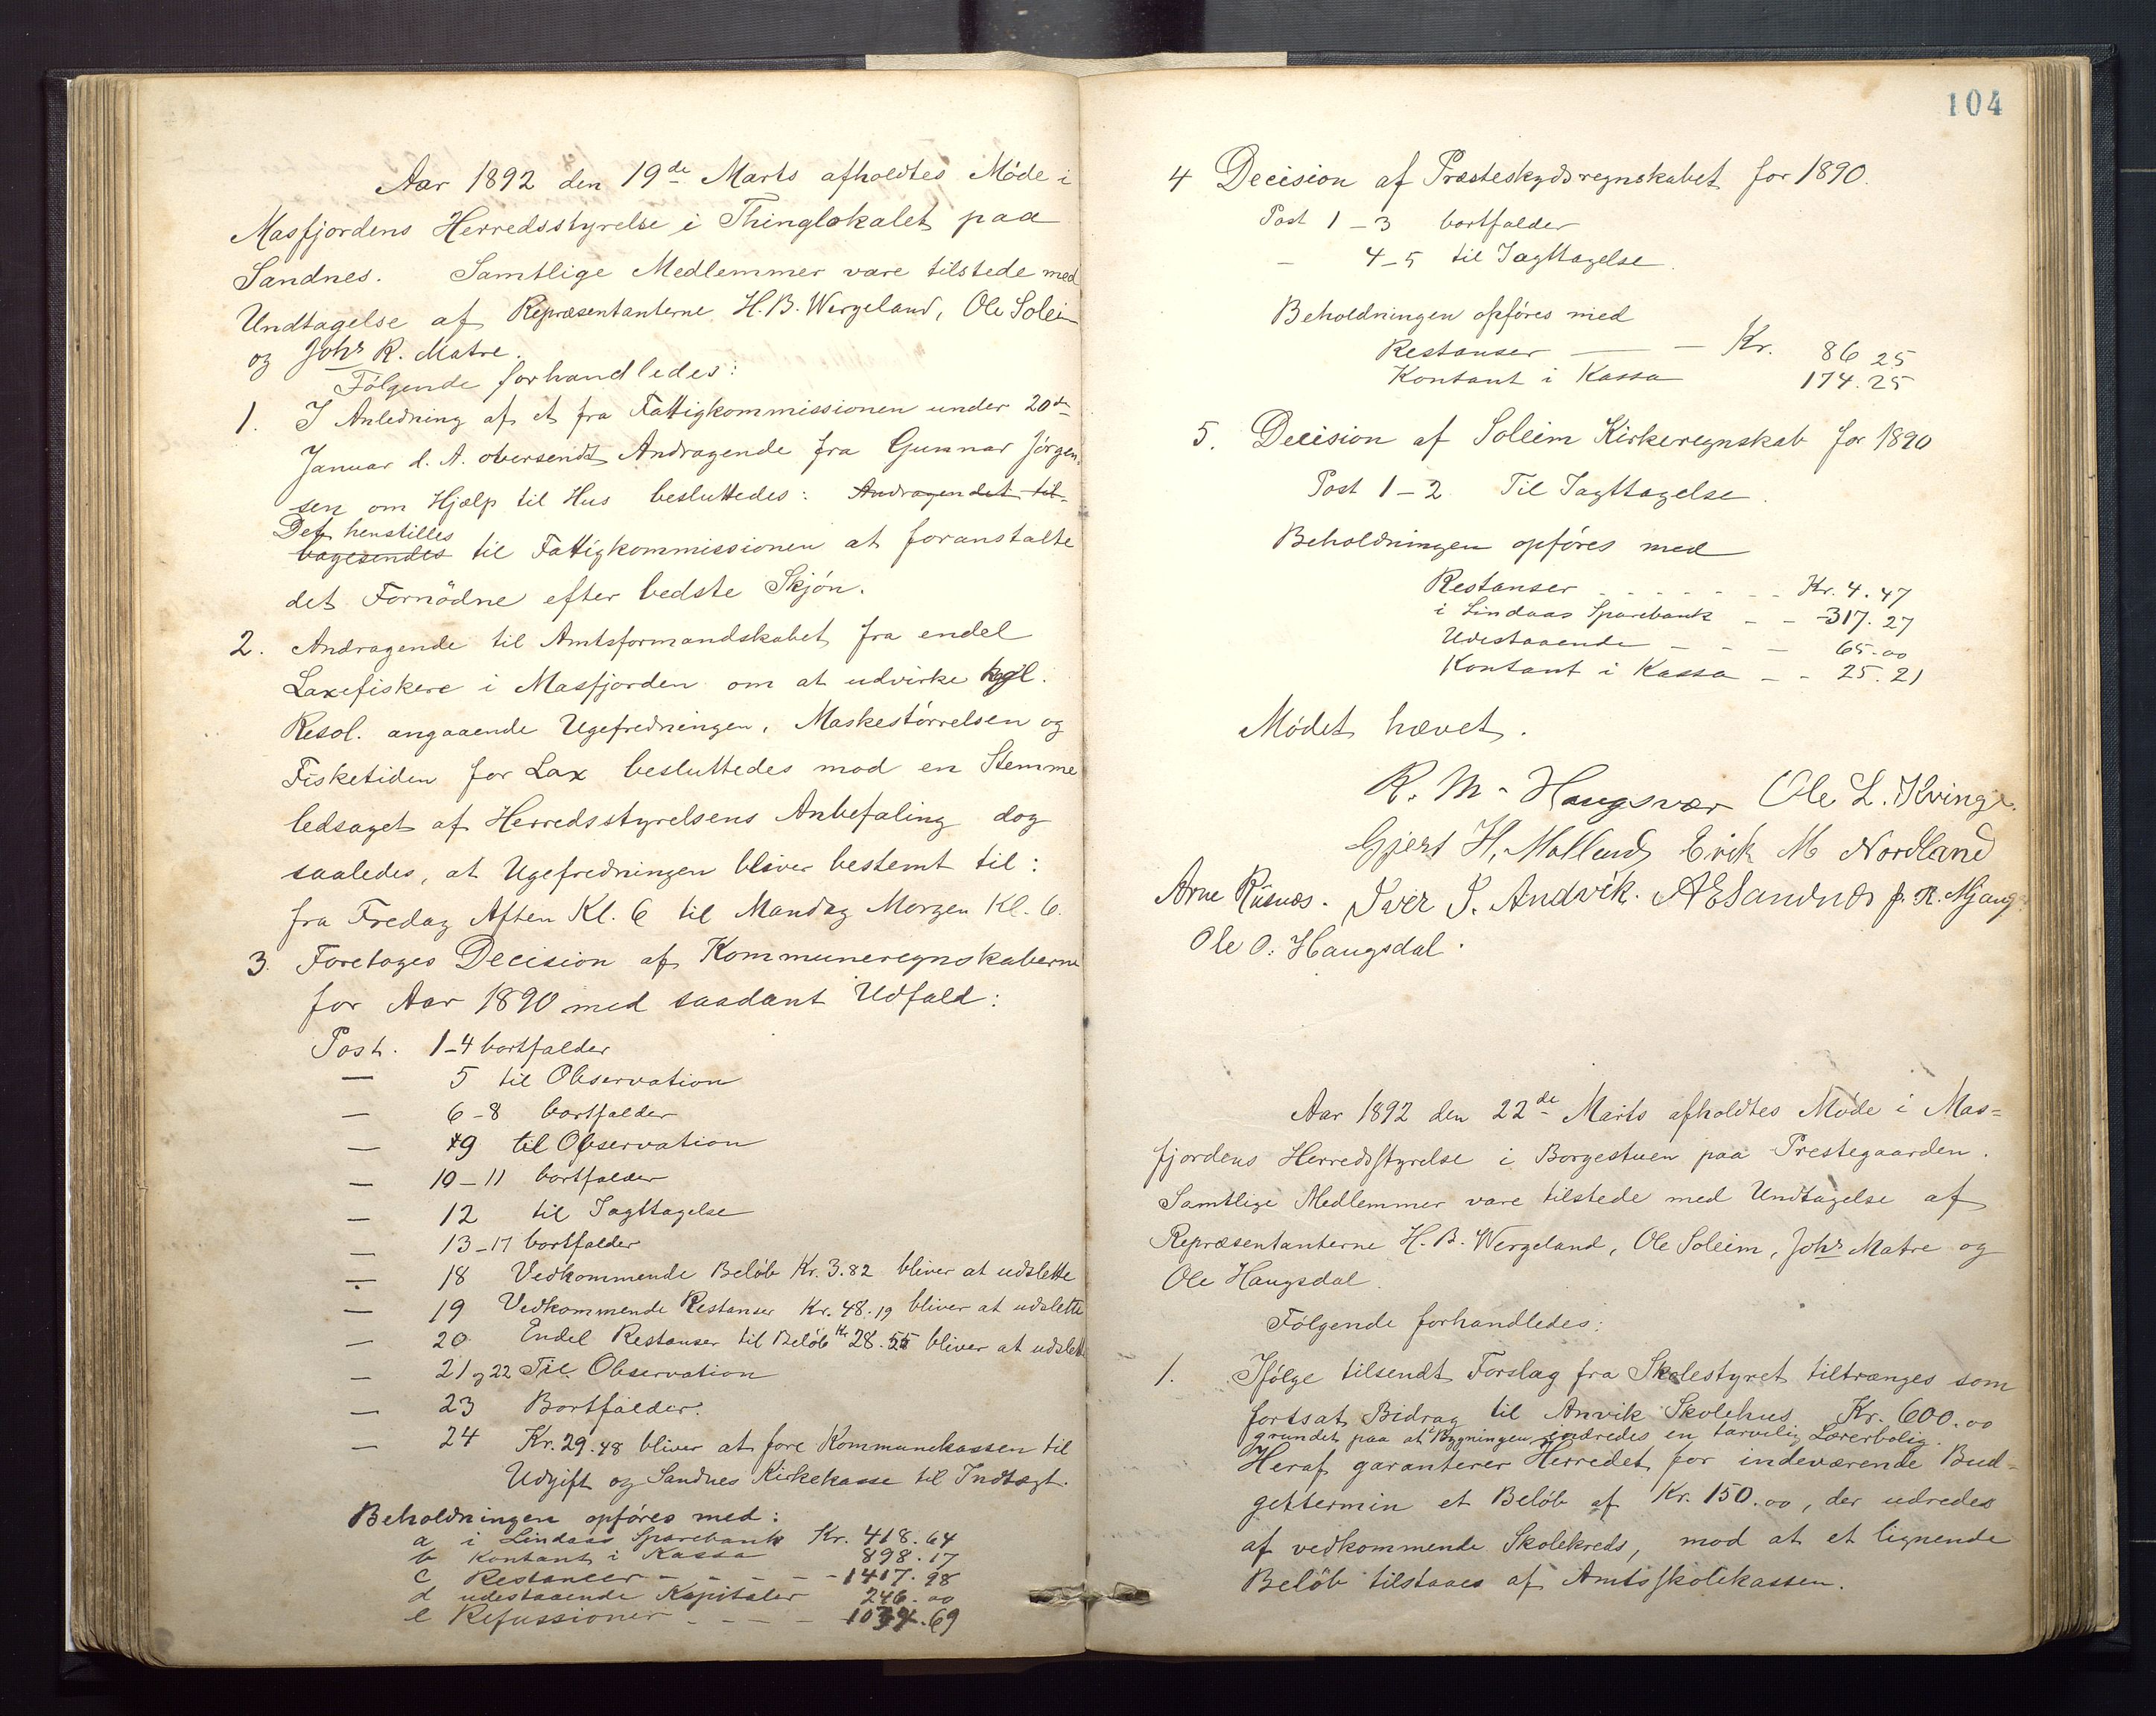 Aar 1892 den 19de Marts afholdtes Møde i
Masfjordens Herredsstyrelse i Thinglokalet paa
Sandnes. Samtlige Medlemmer vare tilstede med
Undtagelse af Repræsentanterne H. B. Wergeland, Ole Soleim
og Johs R. Matre.
Følgende forhandledes:
1. I Anledning af et fra Fattigkommissionen under 20de
Januar d. A. oversendt Andragende fra Gunnar Jørgen-
sen om Hjælp til Hus besluttedes: Andragendet til-
Det henstilles
bagesendes til Fattigkommissionen at foranstalte
det Fornødne efter bedste Skjøn.
2. Andragende til Amtsformandskabet fra endel
Laxefiskere i Masfjorden om at udvirke kgl.
Resol. angaaende Ugefredningen, Maskestørrelsen og
Fisketiden for Lax besluttedes mod en Stemme
ledsaget af Herredsstyrelsens Anbefaling dog
saaledes, at Ugefredningen bliver bestemt til:
fra Fredag Aften Kl. 6 til Mandag Morgen Kl. 6.
3. Foretoges Decision af Kommuneregnskaberne
for Aar 1890 med saadant Udfald:
Post. 1-4 bortfalder
— 5 til Observation
— 6-8 bortfalder
— 9 til Observation
— 10-11 bortfalder
— 12 til Iagttagelse
— 13-17 bortfalder
— 18 Vedkommende Beløb Kr. 3.82 bliver at udslette
— 19 Vedkommende Restanser Kr. 48.19 bliver at udslette
— 20 Endel Restanser til Beløb Kr 28.55 bliver at udslette
— 21 og 22 Til Observation
— 23 Bortfalder.
— 24 Kr. 29.48 bliver at føre Kommunekassen til
Udgift og Sandnes Kirkekasse til Indtægt.
Beholdningen opføres med:
a i Lindaas Sparebank Kr. 418.64
b Kontant i Kassa 898.17
c Restancer - - - - 1417.98
d udestaaende Kapitaler 246.00
e Refussioner - - - - 1034.69
104
4 Decision af Præsteskydsregnskabet for 1890.
Post 1-3 bortfalder
— 4-5 til Iagttagelse.
Beholdningen opføres med
Restanser — — Kr. 86 25
Kontant i Kassa 174.25
5. Decision af Soleim Kirkeregnskab for 1890
Post 1-2 Til Iagttagelse.
Beholdningen opføres med
Restanser - - - - - - Kr. 4.47
i Lindaas Sparebank - - 317.27
Udestaaende - - - 65.00
Kontant i Kassa - - 25.21
Mødet hævet.
R. M. Haugsvær Ole L. Kvinge.
Gjert H. Molland Erik M Nordland
Arne Risnes. Iver S. Andvik. A E Sandnes p. N. Mjang
Ole O. Haugsdal.
Aar 1892 den 22de Marts afholdtes Møde i Mas=
fjordens Herredsstyrelse i Borgestuen paa Prestegaarden.
Samtlige Medlemmer vare tilstede med Undtagelse af
Repræsentanterne H. B. Wergeland, Ole Soleim, Johs Matre og
Ole Haugsdal.
Følgende forhandledes:
1. Ifølge tilsendt Forslag fra Skolestyret tiltrænges som
fortsat Bidrag til Anvik Skolehus Kr. 600.00
grundet paa at Bygningen indredes en tarvelig Lærerbolig.
Heraf garanterer Herredet for indeværende Bud-
gettermin et Beløb af Kr. 150.00, der udredes
af vedkommende Skolekreds, mod at et lignende
Beløb tilstaaes af Amtsskolekassen.